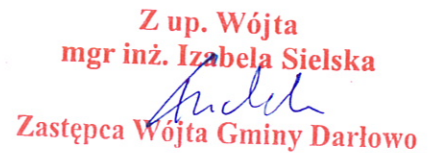 Z up. Wójta
mgr inż. Izabela Sielska
Zastępca Wójta Gminy Darłowo